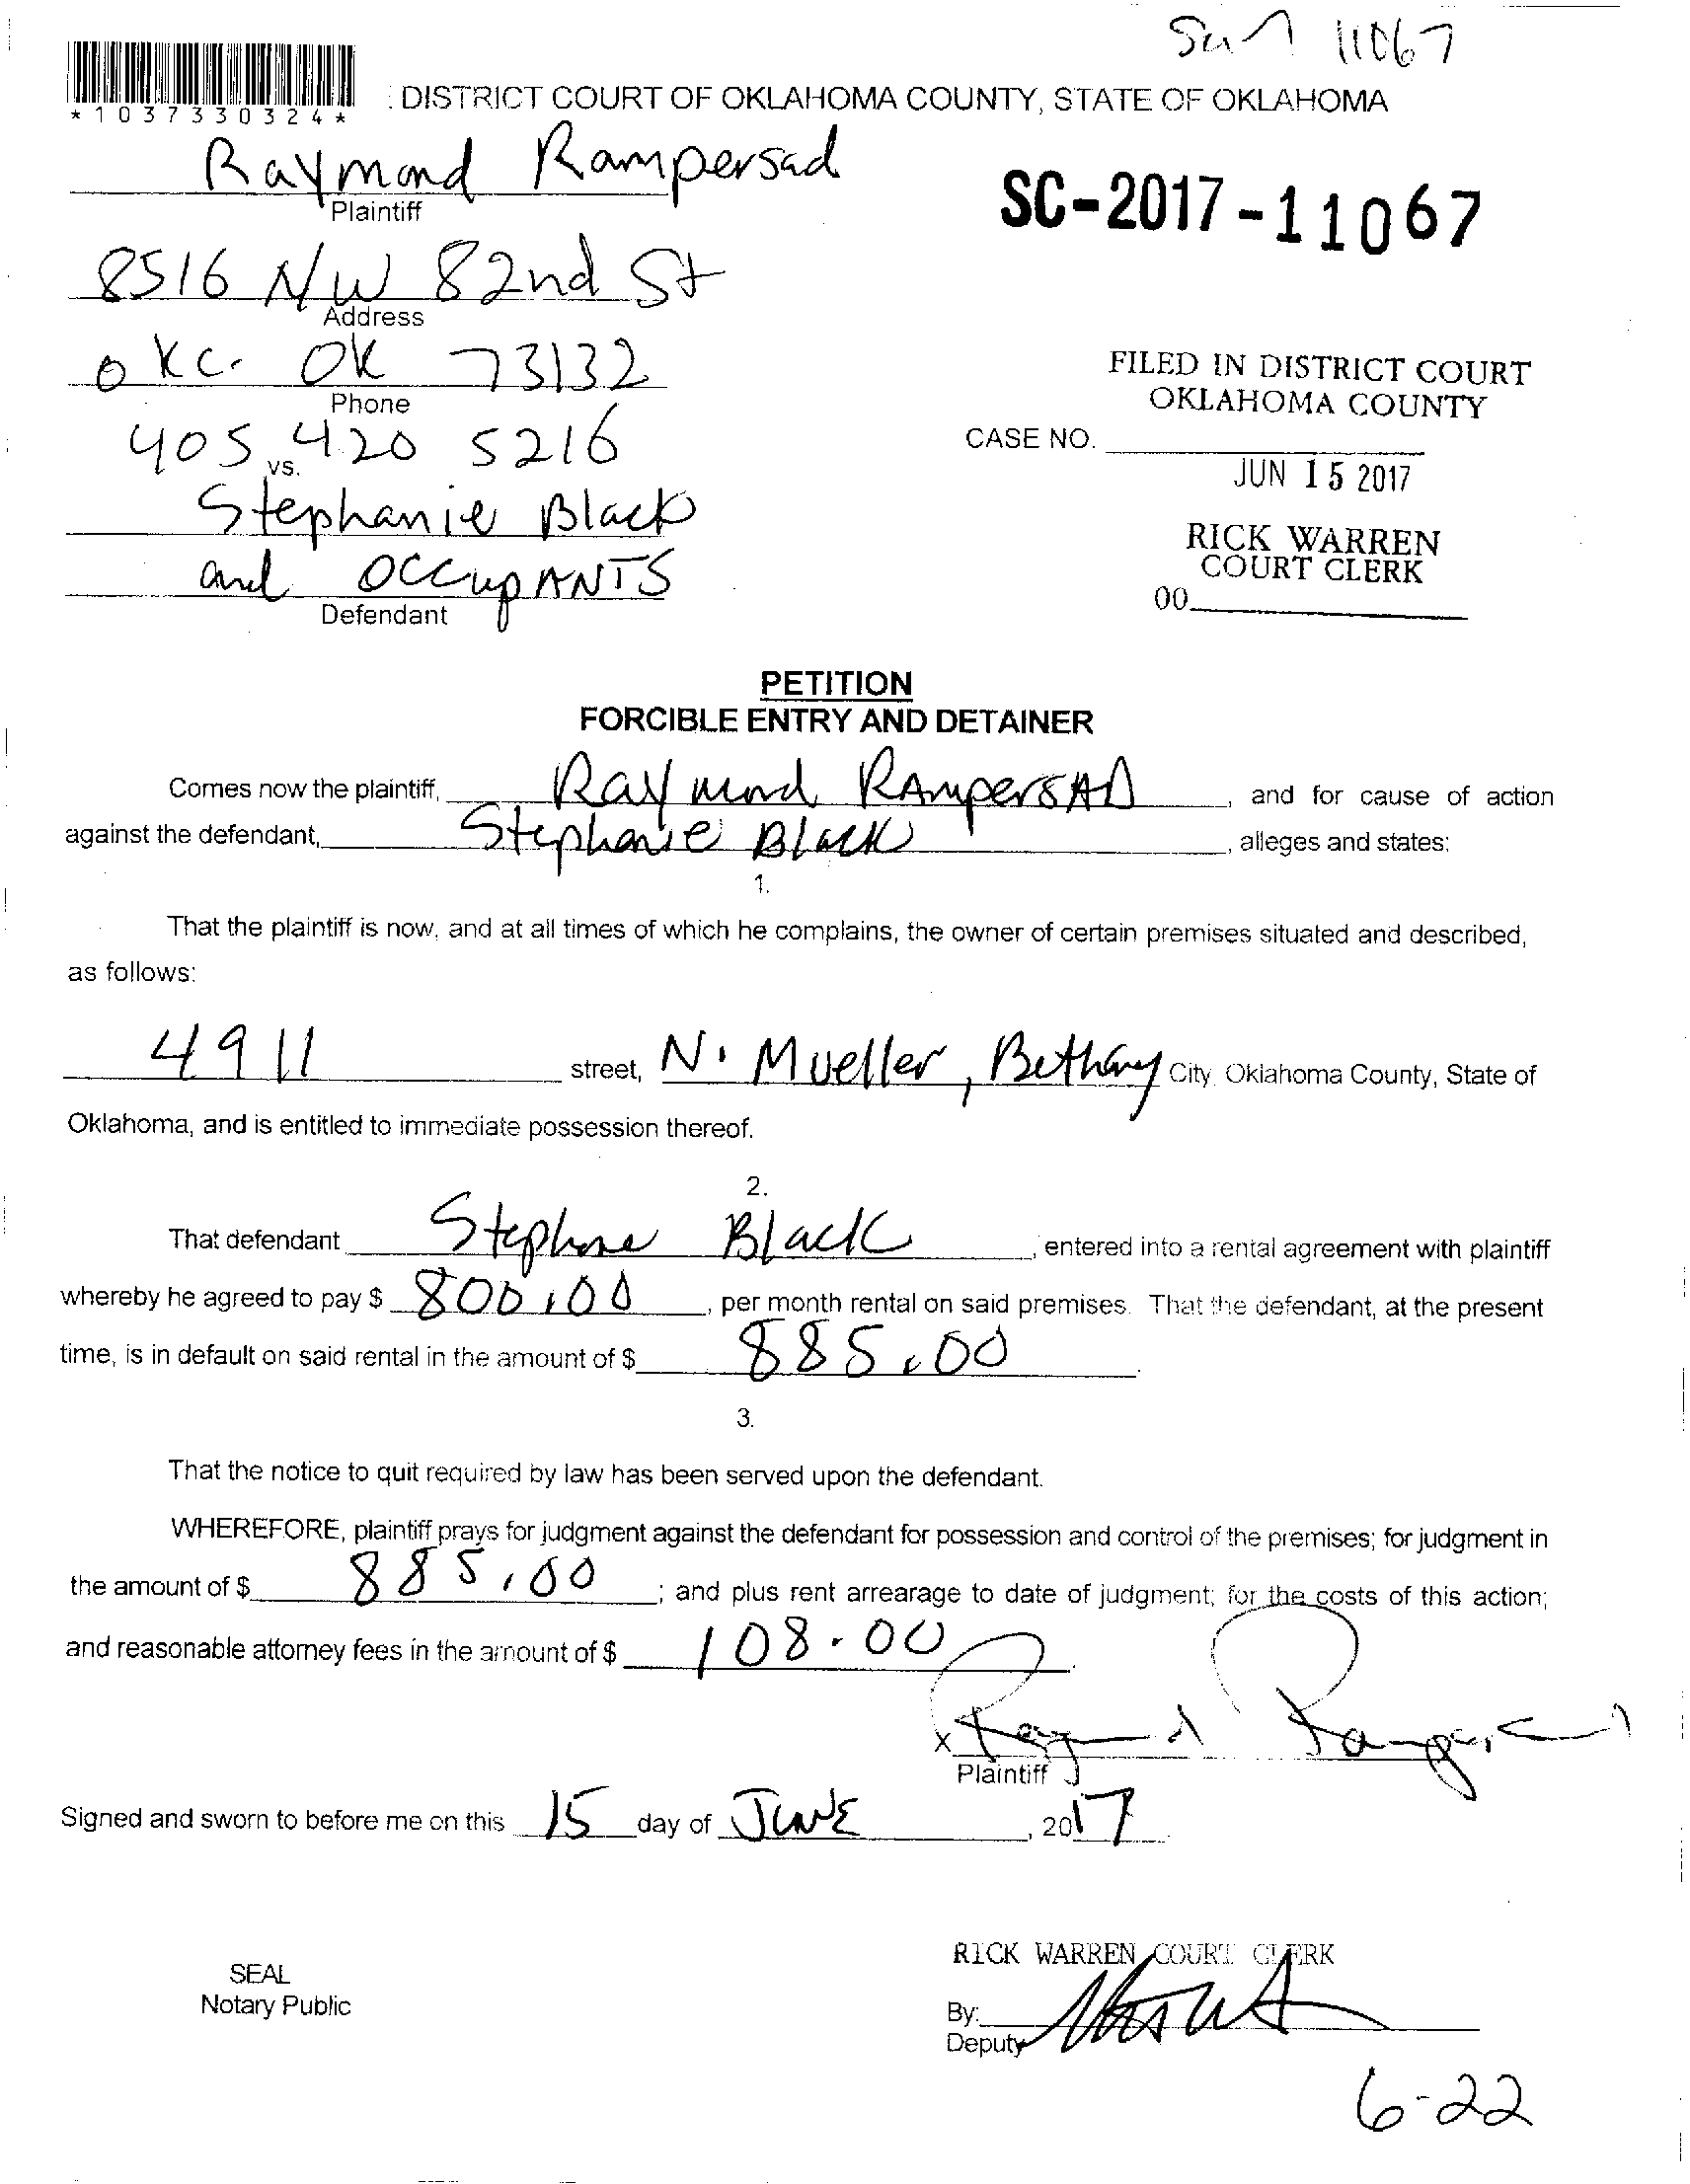 11067
*1037330324*
: DISTRICT COURT OF OKLAHOMA COUNTY, STATE OF OKLAHOMA
Raymond Rampersad
Plaintiff
SC-2017-11067
8516 N/W 82nd St
Address
OKC. OK 73132
Phone
405 420 5216
vs.
Stephanie Black
and OCCupANTS
Defendant
FILED IN DISTRICT COURT
OKLAHOMA COUNTY
CASE NO.
JUN 15 2017
RICK WARREN
COURT CLERK
00
PETITION
FORCIBLE ENTRY AND DETAINER
Comes now the plaintiff, Raymond RAmperSAD, and for cause of action
against the defendant, Stephanie Black, alleges and states:
1.
That the plaintiff is now, and at all times of which he complains, the owner of certain premises situated and described,
as follows:
4911 street, N. Mueller, Bethany City, Oklahoma County, State of
Oklahoma, and is entitled to immediate possession thereof.
2.
That defendant Stephane Black, entered into a rental agreement with plaintiff
whereby he agreed to pay $ 800.00, per month rental on said premises. That the defendant, at the present
time, is in default on said rental in the amount of $ 885.00.
3.
That the notice to quit required by law has been served upon the defendant.
WHEREFORE, plaintiff prays for judgment against the defendant for possession and control of the premises; for judgment in
the amount of $ 885.00; and plus rent arrearage to date of judgment; for the costs of this action;
and reasonable attorney fees in the amount of $ 108.00.
X Raymond Rampersad
Plaintiff
Signed and sworn to before me on this 15 day of JUNE, 2017
SEAL
Notary Public
RICK WARREN COURT CLERK
By:
Deputy
6-22